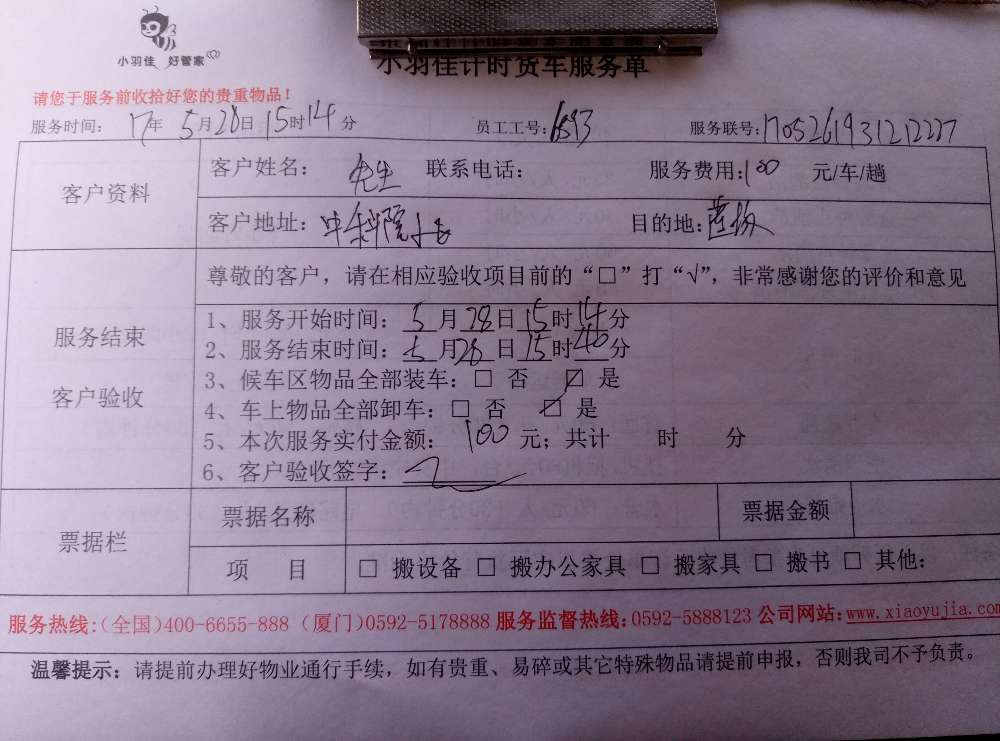 小羽佳 好管家
小羽佳计时货车服务单
请您于服务前收拾好您的贵重物品!
服务时间: 17年 5月28日15时14分 员工工号: 6593 服务联号:170526193121227
客户资料
客户姓名: 先生 联系电话: 服务费用:100 元/车/趟
客户地址: 中科院 目的地:
尊敬的客户，请在相应验收项目前的“□”打“√”，非常感谢您的评价和意见
服务结束
客户验收
1、服务开始时间: 5月28日15时14分
2、服务结束时间: 5月28日15时40分
3、候车区物品全部装车: □ 否 ☑ 是
4、车上物品全部卸车: □ 否 ☑ 是
5、本次服务实付金额: 100元; 共计 时 分
6、客户验收签字:
票据栏
票据名称 票据金额
项 目 □ 搬设备 □ 搬办公家具 □ 搬家具 □ 搬书 □ 其他:
服务热线:(全国)400-6655-888 (厦门)0592-5178888 服务监督热线:0592-5888123 公司网站:www.xiaoyujia.com
温馨提示: 请提前办理好物业通行手续，如有贵重、易碎或其它特殊物品请提前申报，否则我司不予负责。